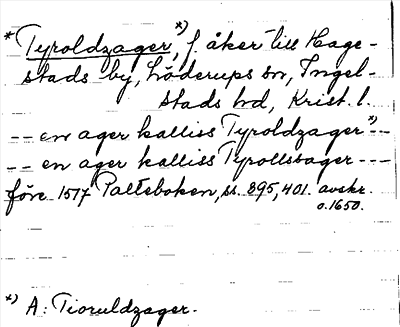 * Tyroldzager,*) f. åker till Hage-
stads by, Löderups sn, Ingel-
stads hd, Krist. l.
-- en ager kalliss Tyroldzager*) --
-- en ager kalliss Tyrollssager ---
före 1517 Palteboken, ss. 395, 401. avskr.
o. 1650.
*) A: Tioruldzager.